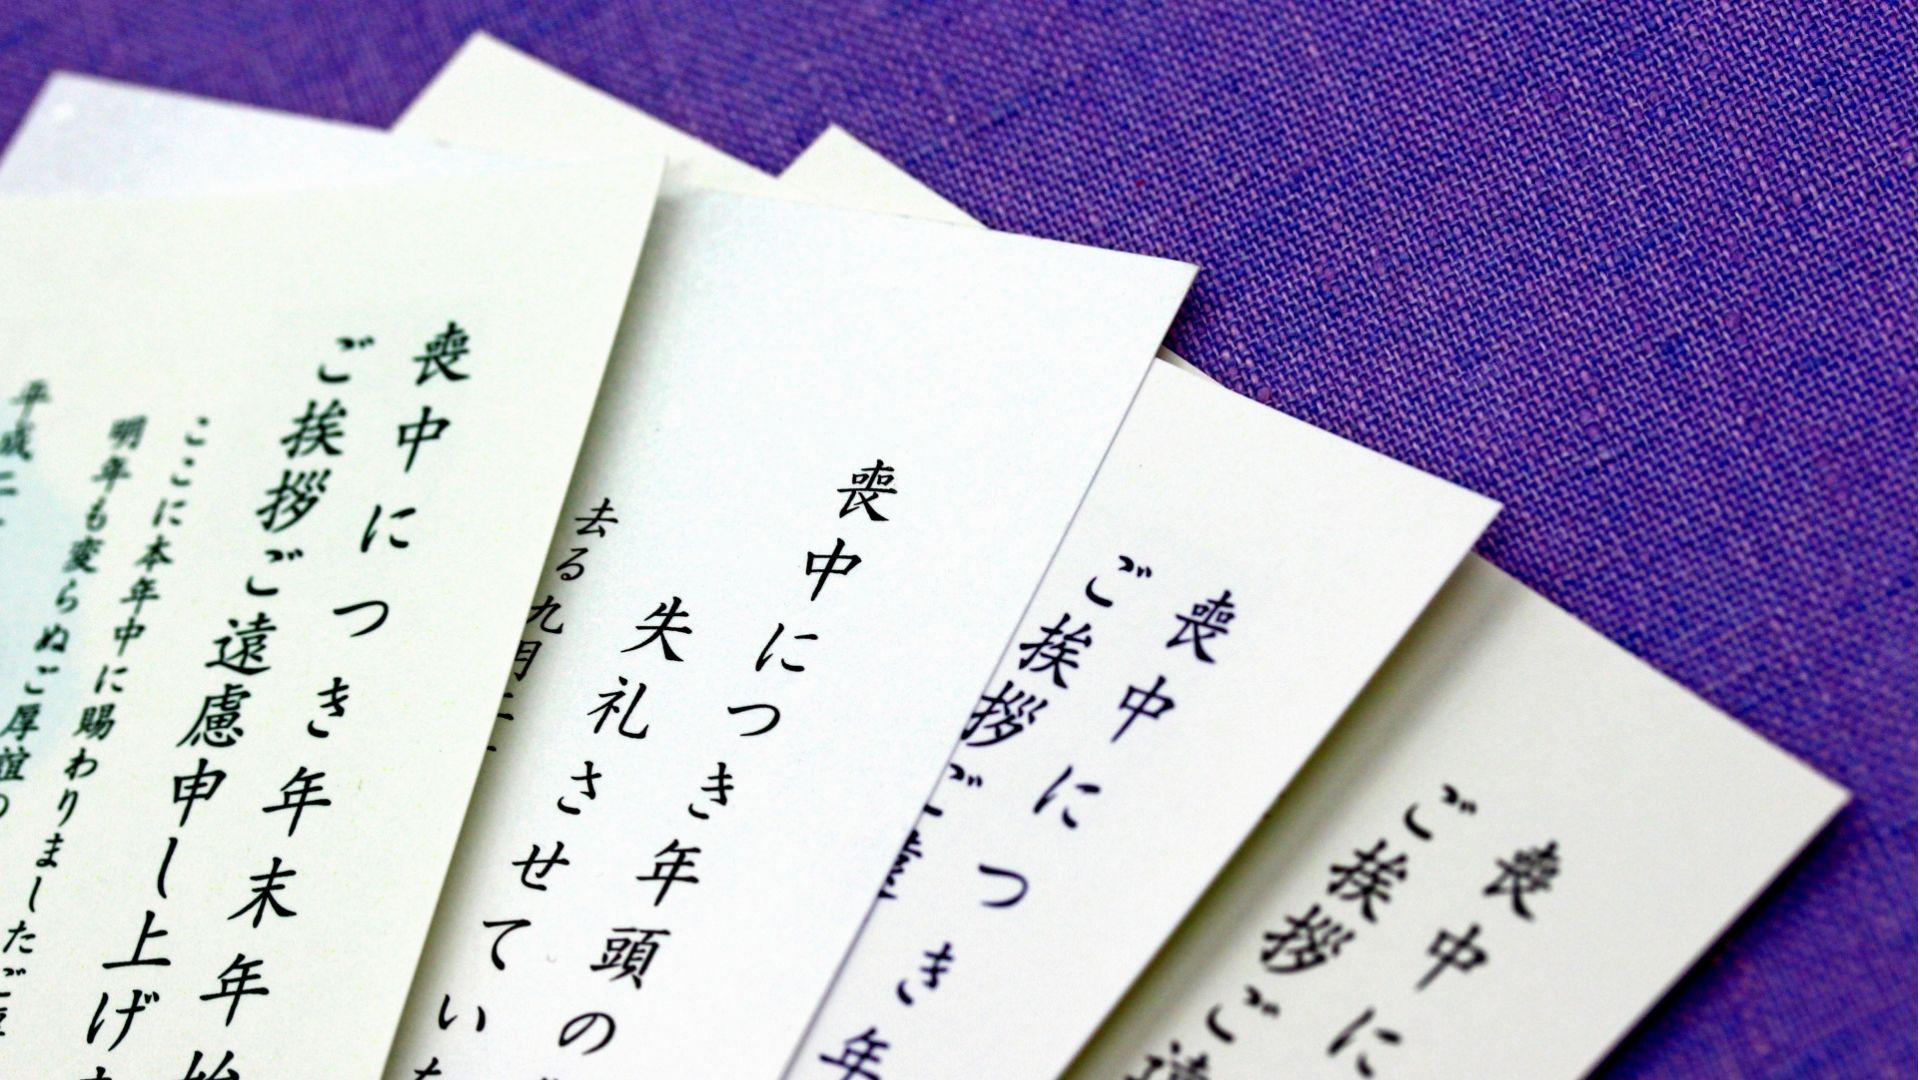 喪中につき年末年始
ご挨拶ご遠慮申し上げ
ここに本年中に賜わりましたご
明年も変らぬご厚誼の
平成二
喪中につき年頭の
失礼させてい
去る九月二
喪中につき年
ご挨拶ご遠
喪中に
ご挨拶ご遠